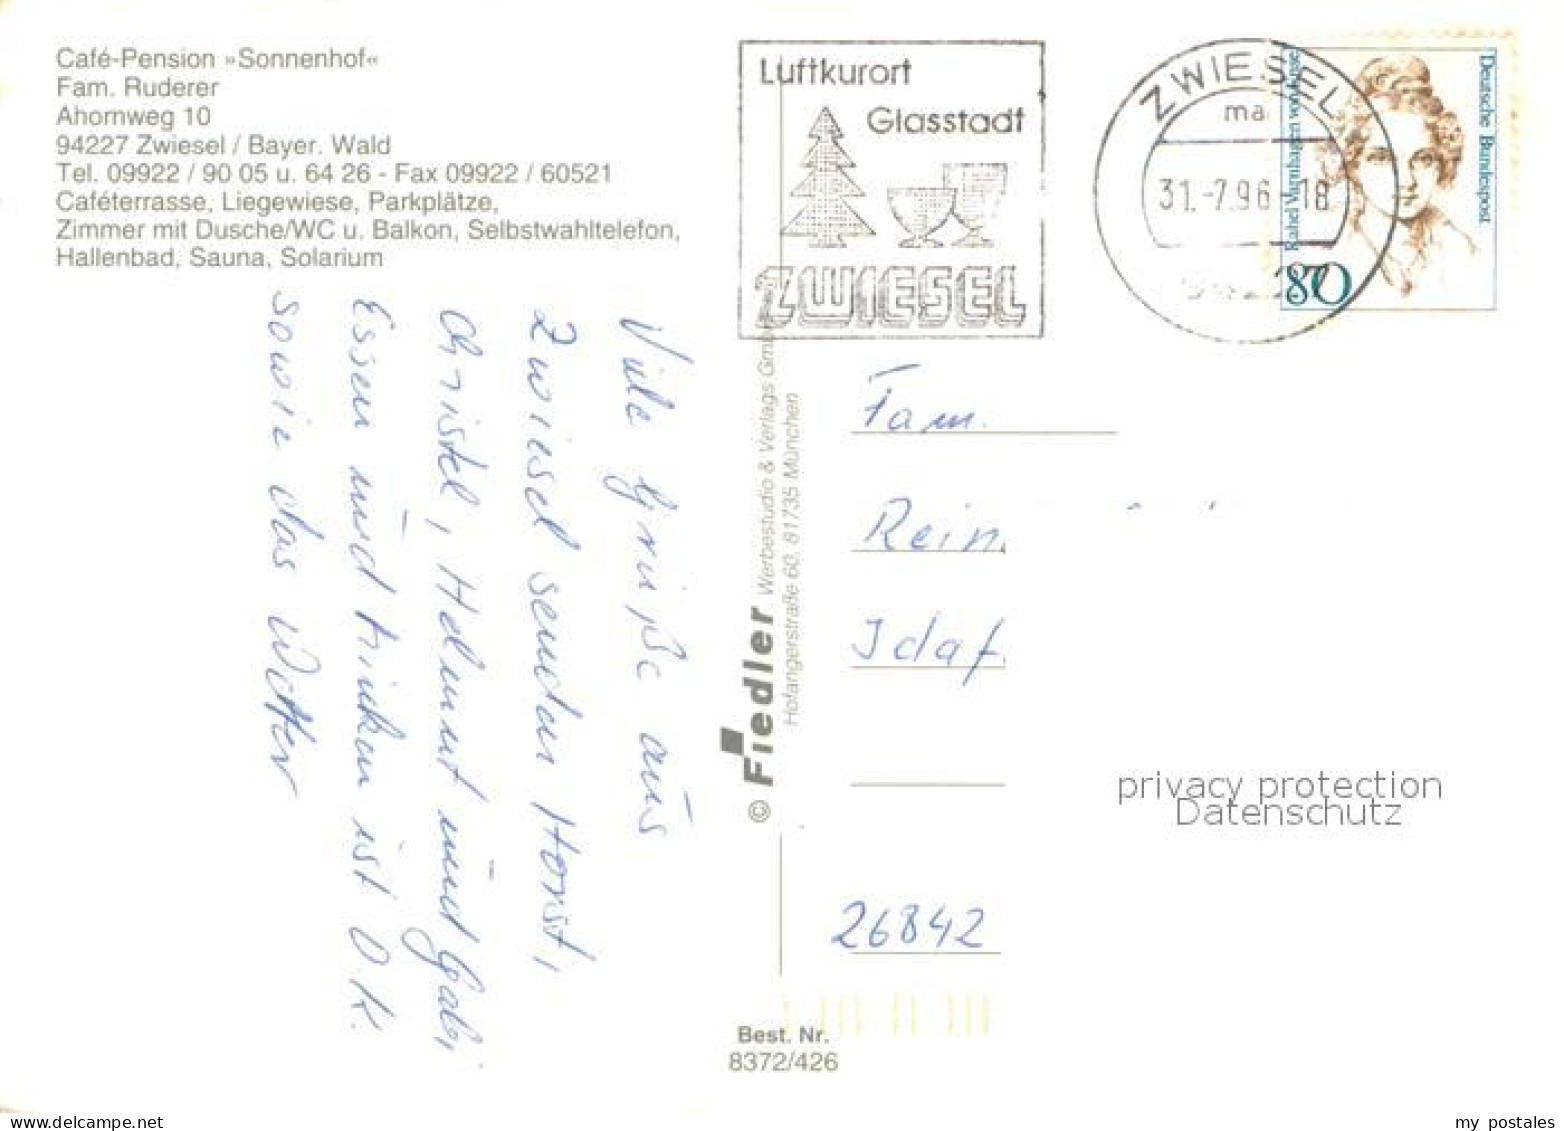 Café-Pension »Sonnenhof«
Fam. Ruderer
Ahornweg 10
94227 Zwiesel / Bayer. Wald
Tel. 09922 / 90 05 u. 64 26 - Fax 09922 / 60521
Caféterrasse, Liegewiese, Parkplätze,
Zimmer mit Dusche/WC u. Balkon, Selbstwahltelefon,
Hallenbad, Sauna, Solarium
Viele Grüße aus
Zwiesel senden Horst,
Christel, Helmut und Gabi
Essen und trinken ist O.K.
sowie das Wetter
Luftkurort
Glasstadt
ZWIESEL
ZWIESEL
ma
31.-7.96 18
Rahel Varnhagen von Ense
Deutsche Bundespost
80
© Fiedler Werbestudio & Verlags GmbH
Hofangerstraße 60, 81735 München
Fam.
Rein
Idaf
26842
privacy protection
Datenschutz
Best. Nr.
8372/426
my postales